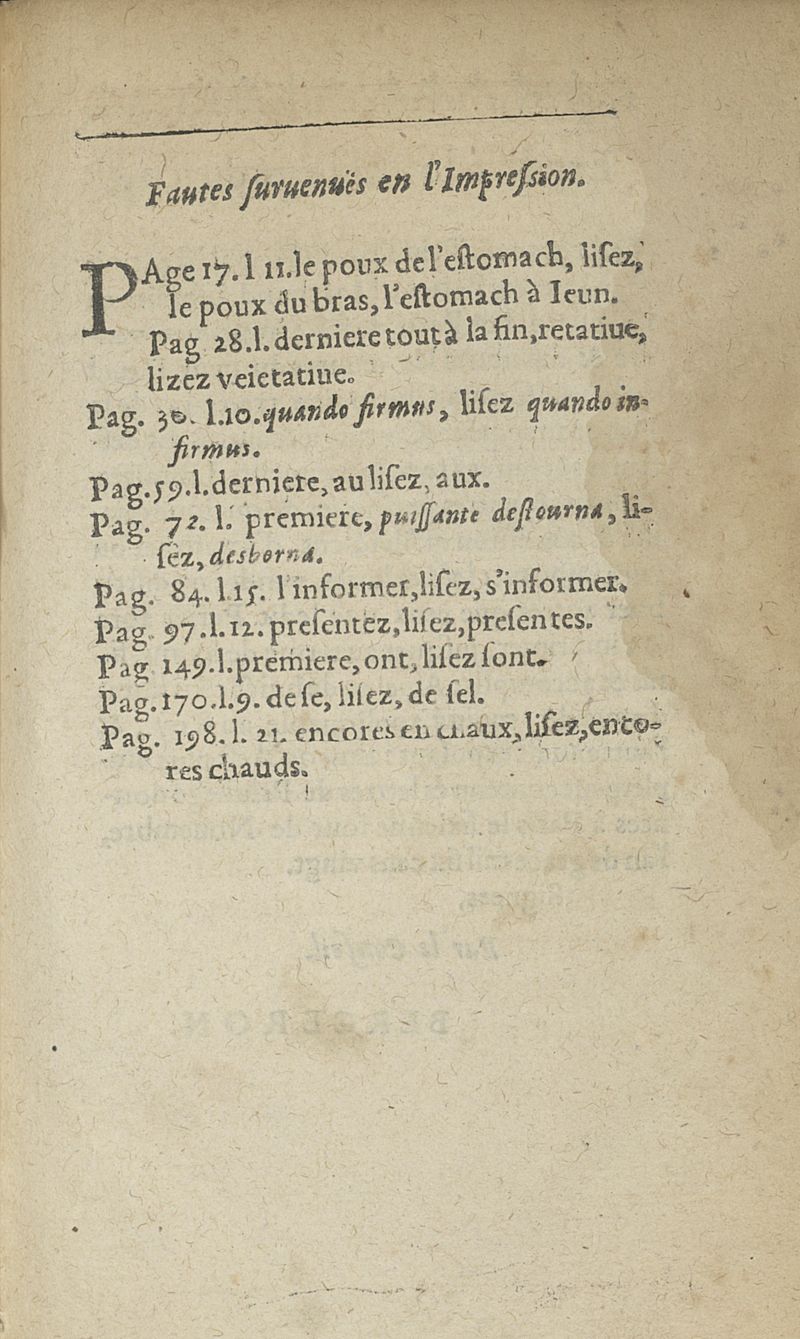 Fautes ſuruenuës en l'Impreſsion.
PAge 17. l 11. le poux de l'eſtomach, liſez,
le poux du bras, l'eſtomach à Ieun.
Pag 28. l. derniere tout à la fin, retatiue,
lizez veietatiue.
Pag. 30. l. 10. quando firmus, liſez quando in-
firmus.
Pag. 59. l. derniere, au liſez, aux.
Pag. 72. l. premiere, puiſſante deſtourna, li-
ſez, desborna.
Pag. 84. l 15. l'informer, liſez, s'informer.
Pag. 97. l. 12. preſentez, liſez, preſentes.
Pag 149. l. premiere, ont, liſez ſont.
Pag. 170. l. 9. de ſe, liſez, de ſel.
Pag. 198. l. 21. encores en chaux, liſez, enco-
res chauds.